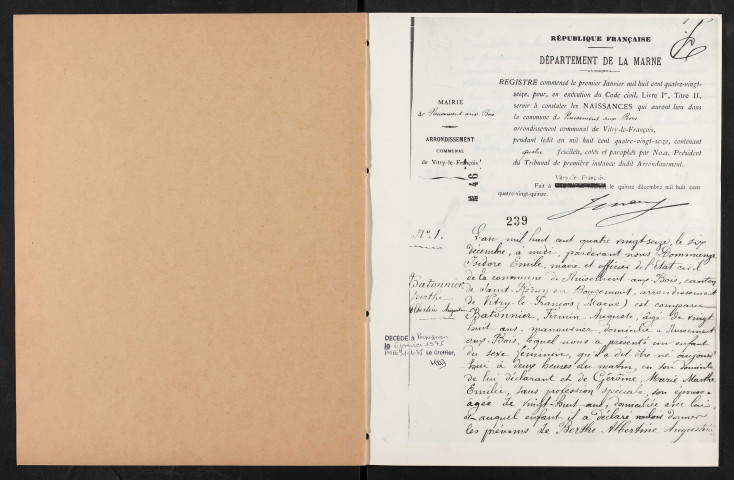 RÉPUBLIQUE FRANÇAISE
DÉPARTEMENT DE LA MARNE
REGISTRE commencé le premier Janvier mil huit cent quatre-vingt-
seize, pour, en exécution du Code civil, Livre Ier, Titre II,
servir à constater les NAISSANCES qui auront lieu dans
la commune de Nuisement aux Bois
arrondissement communal de Vitry-le-François,
pendant ledit an mil huit cent quatre-vingt-seize, contenant
quatre feuillets, cotés et paraphés par Nous, Président
du Tribunal de première instance dudit Arrondissement.
Vitry-le-François,
Fait à le quinze décembre mil huit cent
quatre-vingt-quinze.
MAIRIE
de Nuisement aux Bois
ARRONDISSEMENT
COMMUNAL
de Vitry-le-François
46
239
No 1.
Batonnier
Berthe
Albertine Augustine
DÉCÉDÉ à
le janvier 1975
Le Greffier,
L'an mil huit cent quatre vingt seize, le six
décembre, à midi, pardevant nous Dommange
Isidore Emile, maire et officier de l'Etat civil
de la commune de Nuisement-aux-Bois, canton
de Saint-Remy en Bouzemont, arrondissement
de Vitry-le-François (Marne) est comparu
Batonnier, Firmin Auguste, âgé de vingt
huit ans, manouvrier, domicilié à Nuisement
aux-Bois, lequel nous a présenté un enfant
du sexe féminin, qu'il a dit être né aujourd'
hui à deux heures du matin, en son domicile
de lui déclarant et de Gérôme, Marie Marthe
Emilie, sans profession spéciale, son épouse
âgée de vingt-huit ans, domiciliée avec lui
et auquel enfant il a déclaré vouloir donner
les prénoms de Berthe Albertine Augustine